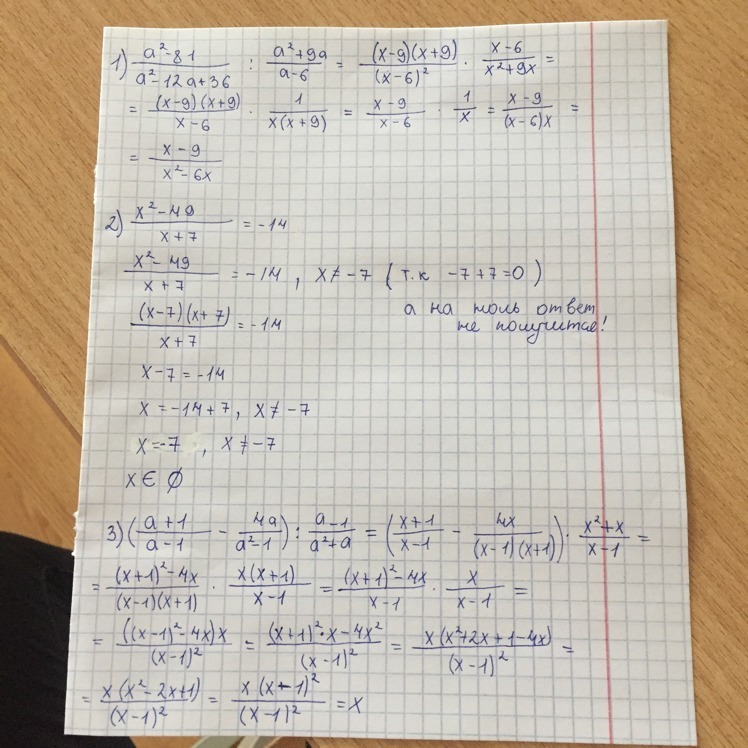 1) (a²-81)/(a²-12a+36) : (a²+9a)/(a-6) = ((x-9)(x+9))/((x-6)²) · (x-6)/(x²+9x) =
= ((x-9)(x+9))/(x-6) · 1/(x(x+9)) = (x-9)/(x-6) · 1/x = (x-9)/((x-6)x) =
= (x-9)/(x²-6x)
2) (x²-49)/(x+7) = -14
(x²-49)/(x+7) = -14, x≠-7 (т.к -7+7=0)
а на ноль ответ
не получится!
((x-7)(x+7))/(x+7) = -14
x-7=-14
x=-14+7, x≠-7
x=-7, x≠-7
x∈ ∅
3) ((a+1)/(a-1) - 4a/(a²-1)) : (a-1)/(a²+a) = ((x+1)/(x-1) - 4x/((x-1)(x+1))) · (x²+x)/(x-1) =
= ((x+1)²-4x)/((x-1)(x+1)) · (x(x+1))/(x-1) = ((x+1)²-4x)/(x-1) · x/(x-1) =
= (((x-1)²-4x)x)/((x-1)²) = ((x+1)²·x-4x²)/((x-1)²) = (x(x²+2x+1-4x))/((x-1)²) =
= (x(x²-2x+1))/((x-1)²) = (x(x-1)²)/((x-1)²) = x